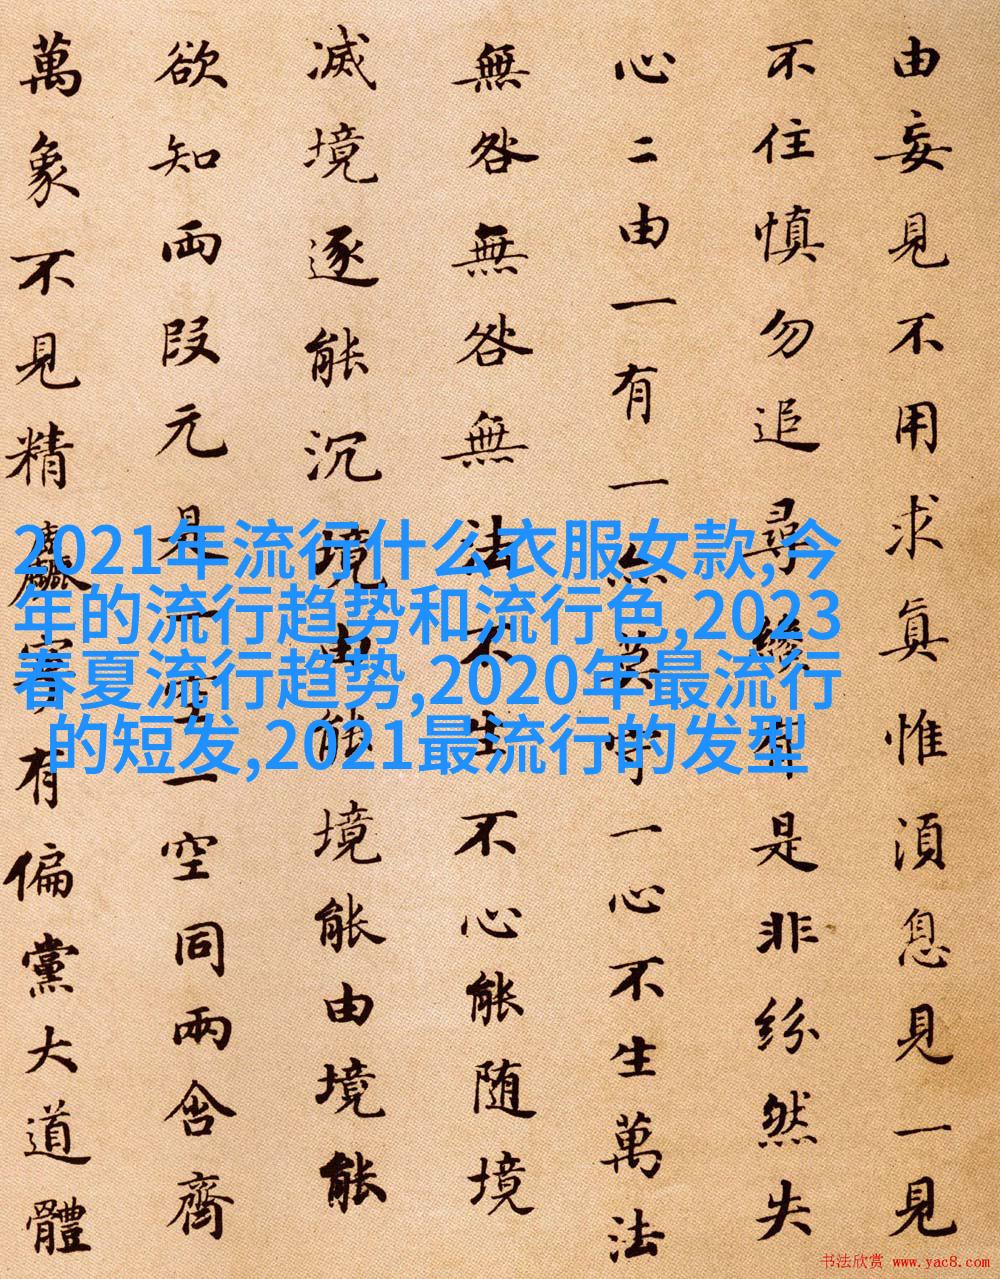 由妄見不用求真惟湏息見一見
不住慎勿追尋纔有是非紛然失
心二由一有一亦莫守一心不生萬法
無咎無咎無法不生不心能随境
滅境逐能沉境由能境能由境能
欲知両段元是一空一空同兩含齊
萬象不見精麤寧有偏黨大道體
2021年流行什么衣服女款,今
年的流行趋势和流行色,2023
春夏流行趋势,2020年最流行
的短发,2021最流行的发型
书法欣赏 www.yac8.com